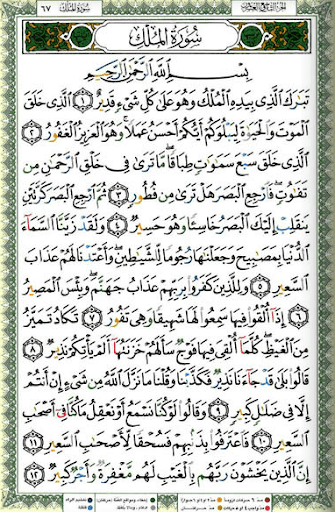 سورة الملك
٦٧
الجزء التاسع والعشرون
سُورَةُ الْمُلْكِ
بِسْمِ اللَّهِ الرَّحْمَٰنِ الرَّحِيمِ
تَبَارَكَ الَّذِي بِيَدِهِ الْمُلْكُ وَهُوَ عَلَىٰ كُلِّ شَيْءٍ قَدِيرٌ ١ الَّذِي خَلَقَ
الْمَوْتَ وَالْحَيَاةَ لِيَبْلُوَكُمْ أَيُّكُمْ أَحْسَنُ عَمَلًا وَهُوَ الْعَزِيزُ الْغَفُورُ ٢
الَّذِي خَلَقَ سَبْعَ سَمَاوَاتٍ طِبَاقًا مَّا تَرَىٰ فِي خَلْقِ الرَّحْمَٰنِ مِن
تَفَاوُتٍ فَارْجِعِ الْبَصَرَ هَلْ تَرَىٰ مِن فُطُورٍ ٣ ثُمَّ ارْجِعِ الْبَصَرَ كَرَّتَيْنِ
يَنقَلِبْ إِلَيْكَ الْبَصَرُ خَاسِئًا وَهُوَ حَسِيرٌ ٤ وَلَقَدْ زَيَّنَّا السَّمَاءَ
الدُّنْيَا بِمَصَابِيحَ وَجَعَلْنَاهَا رُجُومًا لِّلشَّيَاطِينِ وَأَعْتَدْنَا لَهُمْ عَذَابَ
السَّعِيرِ ٥ وَلِلَّذِينَ كَفَرُوا بِرَبِّهِمْ عَذَابُ جَهَنَّمَ وَبِئْسَ الْمَصِيرُ
٦ إِذَا أُلْقُوا فِيهَا سَمِعُوا لَهَا شَهِيقًا وَهِيَ تَفُورُ ٧ تَكَادُ تَمَيَّزُ
مِنَ الْغَيْظِ كُلَّمَا أُلْقِيَ فِيهَا فَوْجٌ سَأَلَهُمْ خَزَنَتُهَا أَلَمْ يَأْتِكُمْ نَذِيرٌ ٨
قَالُوا بَلَىٰ قَدْ جَاءَنَا نَذِيرٌ فَكَذَّبْنَا وَقُلْنَا مَا نَزَّلَ اللَّهُ مِن شَيْءٍ إِنْ أَنتُمْ
إِلَّا فِي ضَلَالٍ كَبِيرٍ ٩ وَقَالُوا لَوْ كُنَّا نَسْمَعُ أَوْ نَعْقِلُ مَا كُنَّا فِي أَصْحَابِ
السَّعِيرِ ١٠ فَاعْتَرَفُوا بِذَنبِهِمْ فَسُحْقًا لِّأَصْحَابِ السَّعِيرِ ١١
إِنَّ الَّذِينَ يَخْشَوْنَ رَبَّهُم بِالْغَيْبِ لَهُم مَّغْفِرَةٌ وَأَجْرٌ كَبِيرٌ ١٢